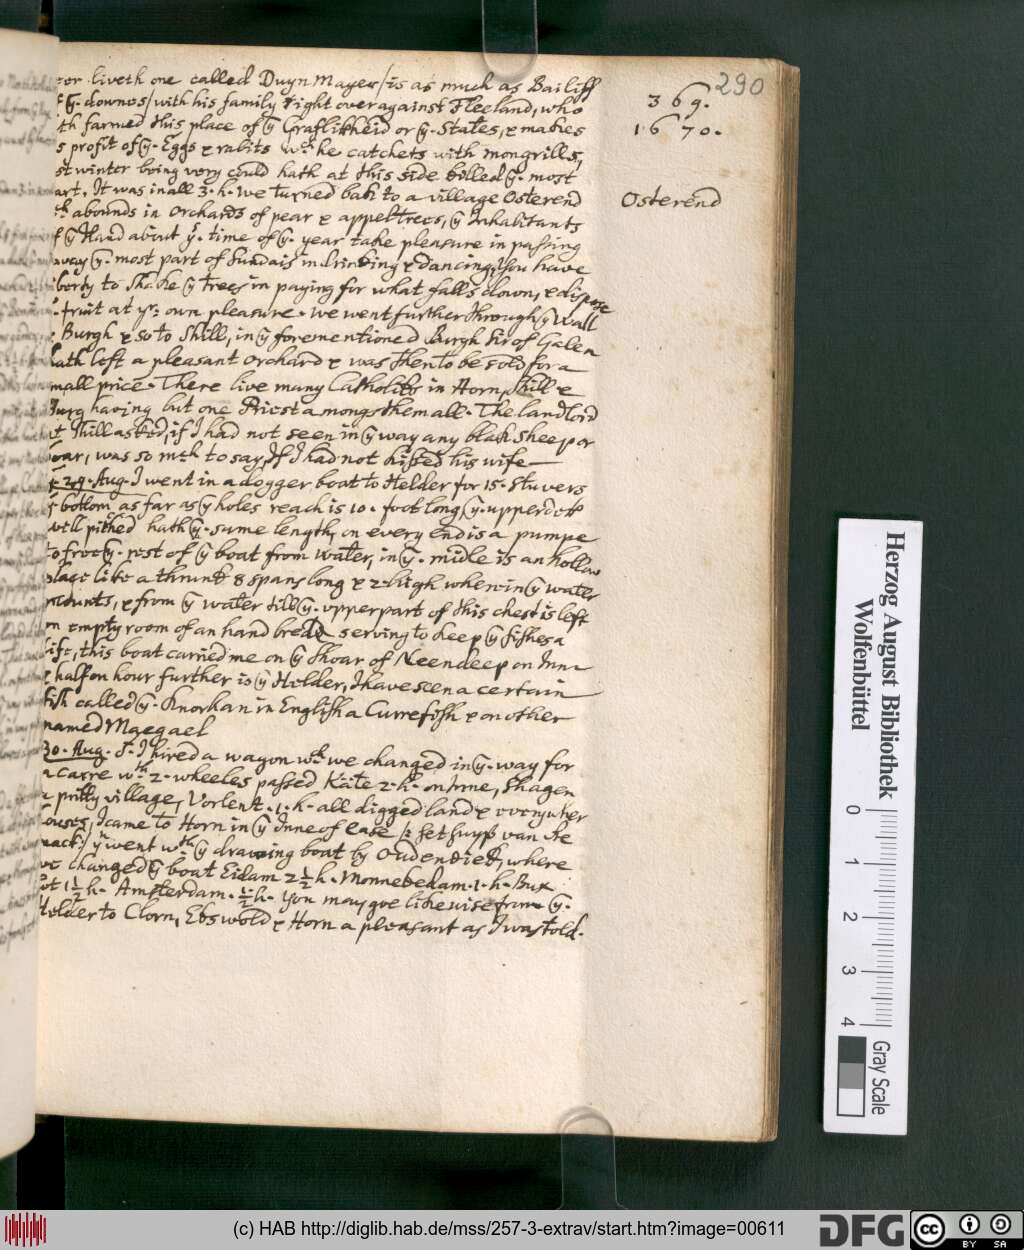 290
369.
1670.
Osterend
liveth one called Duyn Mayer / is as much as Bailiff
ÿ. downes / with his family right over against Fleeland, who
th farmed this place of ÿ Graflikheid or ÿ. States, & makes
s profit of ÿ. Eggs & rabits wch he catchets with mongrills,
st winter being very could hath at this side killed ÿ. most
art. It was in all 3. h. we turned bak to a village Osterend
ch abounds in orchards of pear & appel trees, ÿ Inhabitants
f ÿ Iland about ÿ. time of ÿ. year take pleasure in passing
away ÿ. most part of Sundais in drinking & dancing, You have
iberty to shake ÿ trees in paying for what falls down, & dispose
fruit at yr: own pleasure. we went further through ÿ Wall
Burgh & so to Shill, in ÿ forementioned Burgh Sir of Galen
hath left a pleasant orchard & was then to be sold for a
mall price. There live many Catholiks in Horn, Shill &
Burg having but one Priest amongs them all. The landlord
t Shill asked, if I had not seen in ÿ way any blak sheep or
oar, was so mch to say, If I had not kissed his wife
29. Aug. I went in a dogger boat to Helder for 15. stuvers
ÿ bottom as far as ÿ holes reach is 10. foot long ÿ. upperdek
well pitched hath ÿ. same length, on every end is a pumpe
to free ÿ. rest of ÿ boat from water, in ÿ. midle is an hollow
place like a thrunk 8 spans long & 2. high wherein ÿ water
mounts, & from ÿ water till ÿ. upperpart of this chest is left
an empty room of an hand bredth serving to keep ÿ fishes a
life, this boat carried me on ÿ shoar of Neendeep on Inn
half on hour further is ÿ Helder, I have seen a certain
fish called ÿ. Knorhan in English a Currefish & on other
named Maegael
30. Aug. I hired a wagon wch we changed in ÿ. way for
a carre wth 2. wheeles passed Kate 2. h. on Inne, Shagen
a pritty village, Vorlent. 1. h. all digged land & everywher
ouses, I came to Horn in ÿ Inne of ease /: het huyss van
mack :/ yn went wth ÿ drawing boat by Oudendick, where
we changed ÿ boat Eidam 2 1/2 h. Monnekedam. 1. h. Bux
lot 1 1/2 h. Amsterdam. 1/2 h. You may goe likewise from ÿ.
Helder to Clorn, Ebswold & Horn a pleasant as I was told.
Herzog August Bibliothek
Wolfenbüttel
0 1 2 3 4
Gray Scale
(c) HAB http://diglib.hab.de/mss/257-3-extrav/start.htm?image=00611
DFG
cc BY SA